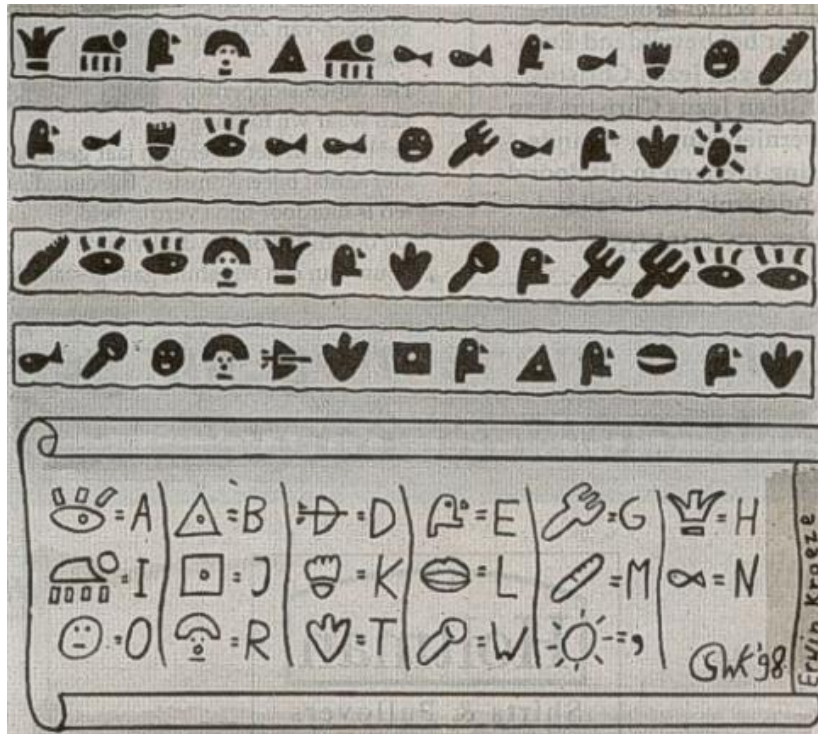 =A =B =D =E =G =H
=I =J =K =L =M =N
=O =R =T =W =,
GWK'98
Erwin Kroeze